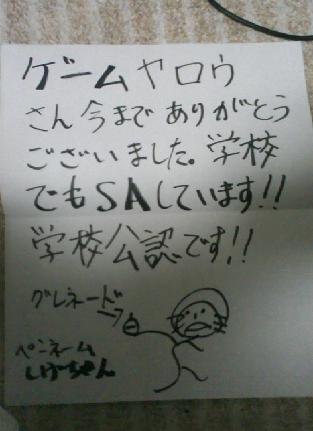 ゲームヤロウ
さん今までありがとう
ございました。学校
でもSAしています!!
学校公認です!!
グレネード
→
ペンネーム
しげちゃん